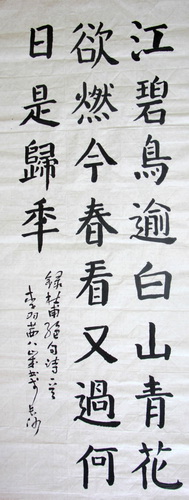 江碧鳥逾白山青花
欲燃今春看又過何
日是歸秊
錄杜甫絕句詩一首